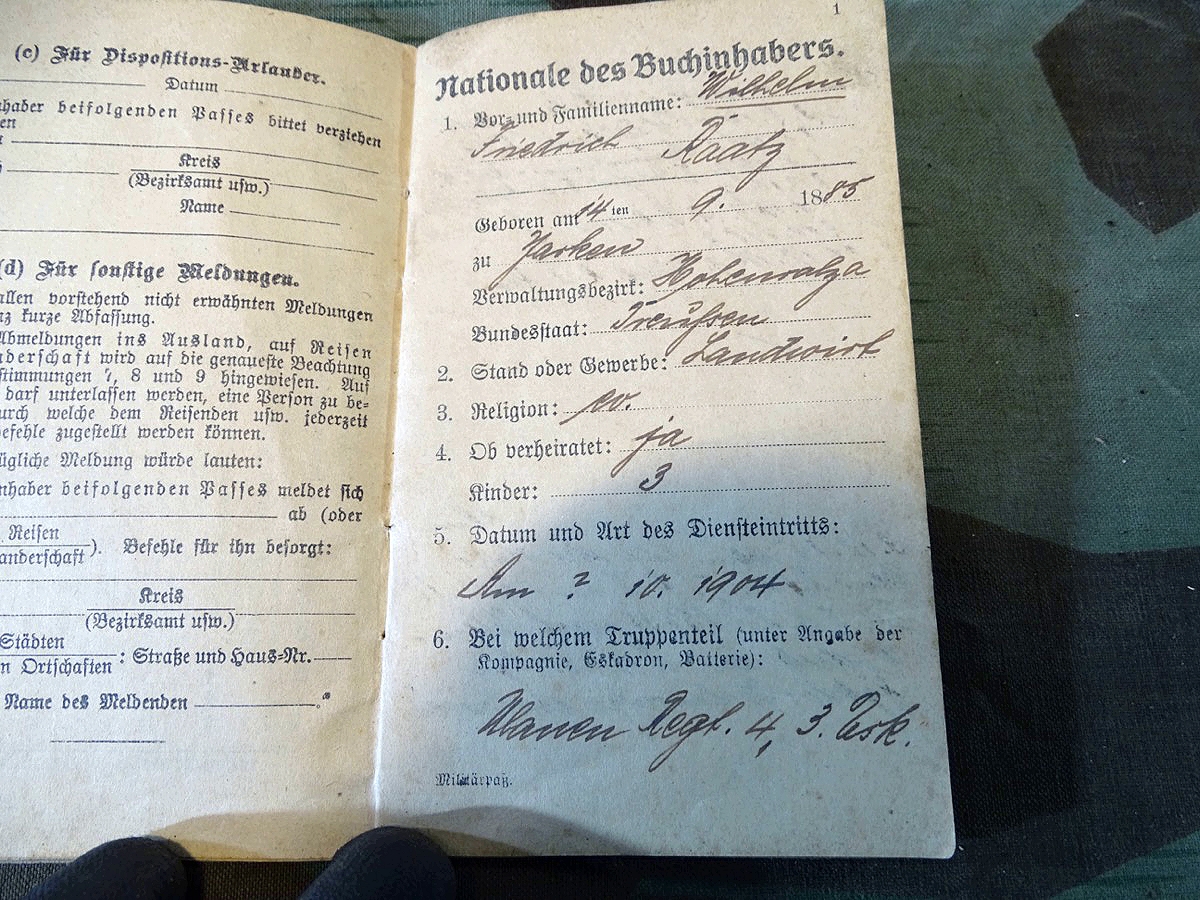 (c) Für Dispositions-Urlauber.
Datum
haber beifolgenden Passes bittet verziehen
en
Kreis
(Bezirksamt usw.)
Name
(d) Für sonstige Meldungen.
allen vorstehend nicht erwähnten Meldungen
nz kurze Abfassung.
Abmeldungen ins Ausland, auf Reisen
nderschaft wird auf die genaueste Beachtung
stimmungen 7, 8 und 9 hingewiesen. Auf
darf unterlassen werden, eine Person zu be-
urch welche dem Reisenden usw. jederzeit
efehle zugestellt werden können.
ügliche Meldung würde lauten:
nhaber beifolgenden Passes meldet sich
ab (oder
Reisen
anderschaft). Befehle für ihn besorgt:
Kreis
(Bezirksamt usw.)
Städten
n Ortschaften: Straße und Haus-Nr.
Name des Meldenden
1
Nationale des Buchinhabers.
1. Vor- und Familienname: Wilhelm
Friedrich Raatz
Geboren am 14 ten 9. 1885
zu Jarken
Verwaltungsbezirk: Hohensalza
Bundesstaat: Preußen
2. Stand oder Gewerbe: Landwirt
3. Religion: ev.
4. Ob verheiratet: ja
Kinder: 3
5. Datum und Art des Diensteintritts:
Am ? 10. 1904
6. Bei welchem Truppenteil (unter Angabe der
Kompagnie, Eskadron, Batterie):
Ulanen Regt. 4, 3. Esk.
Militärpaß.